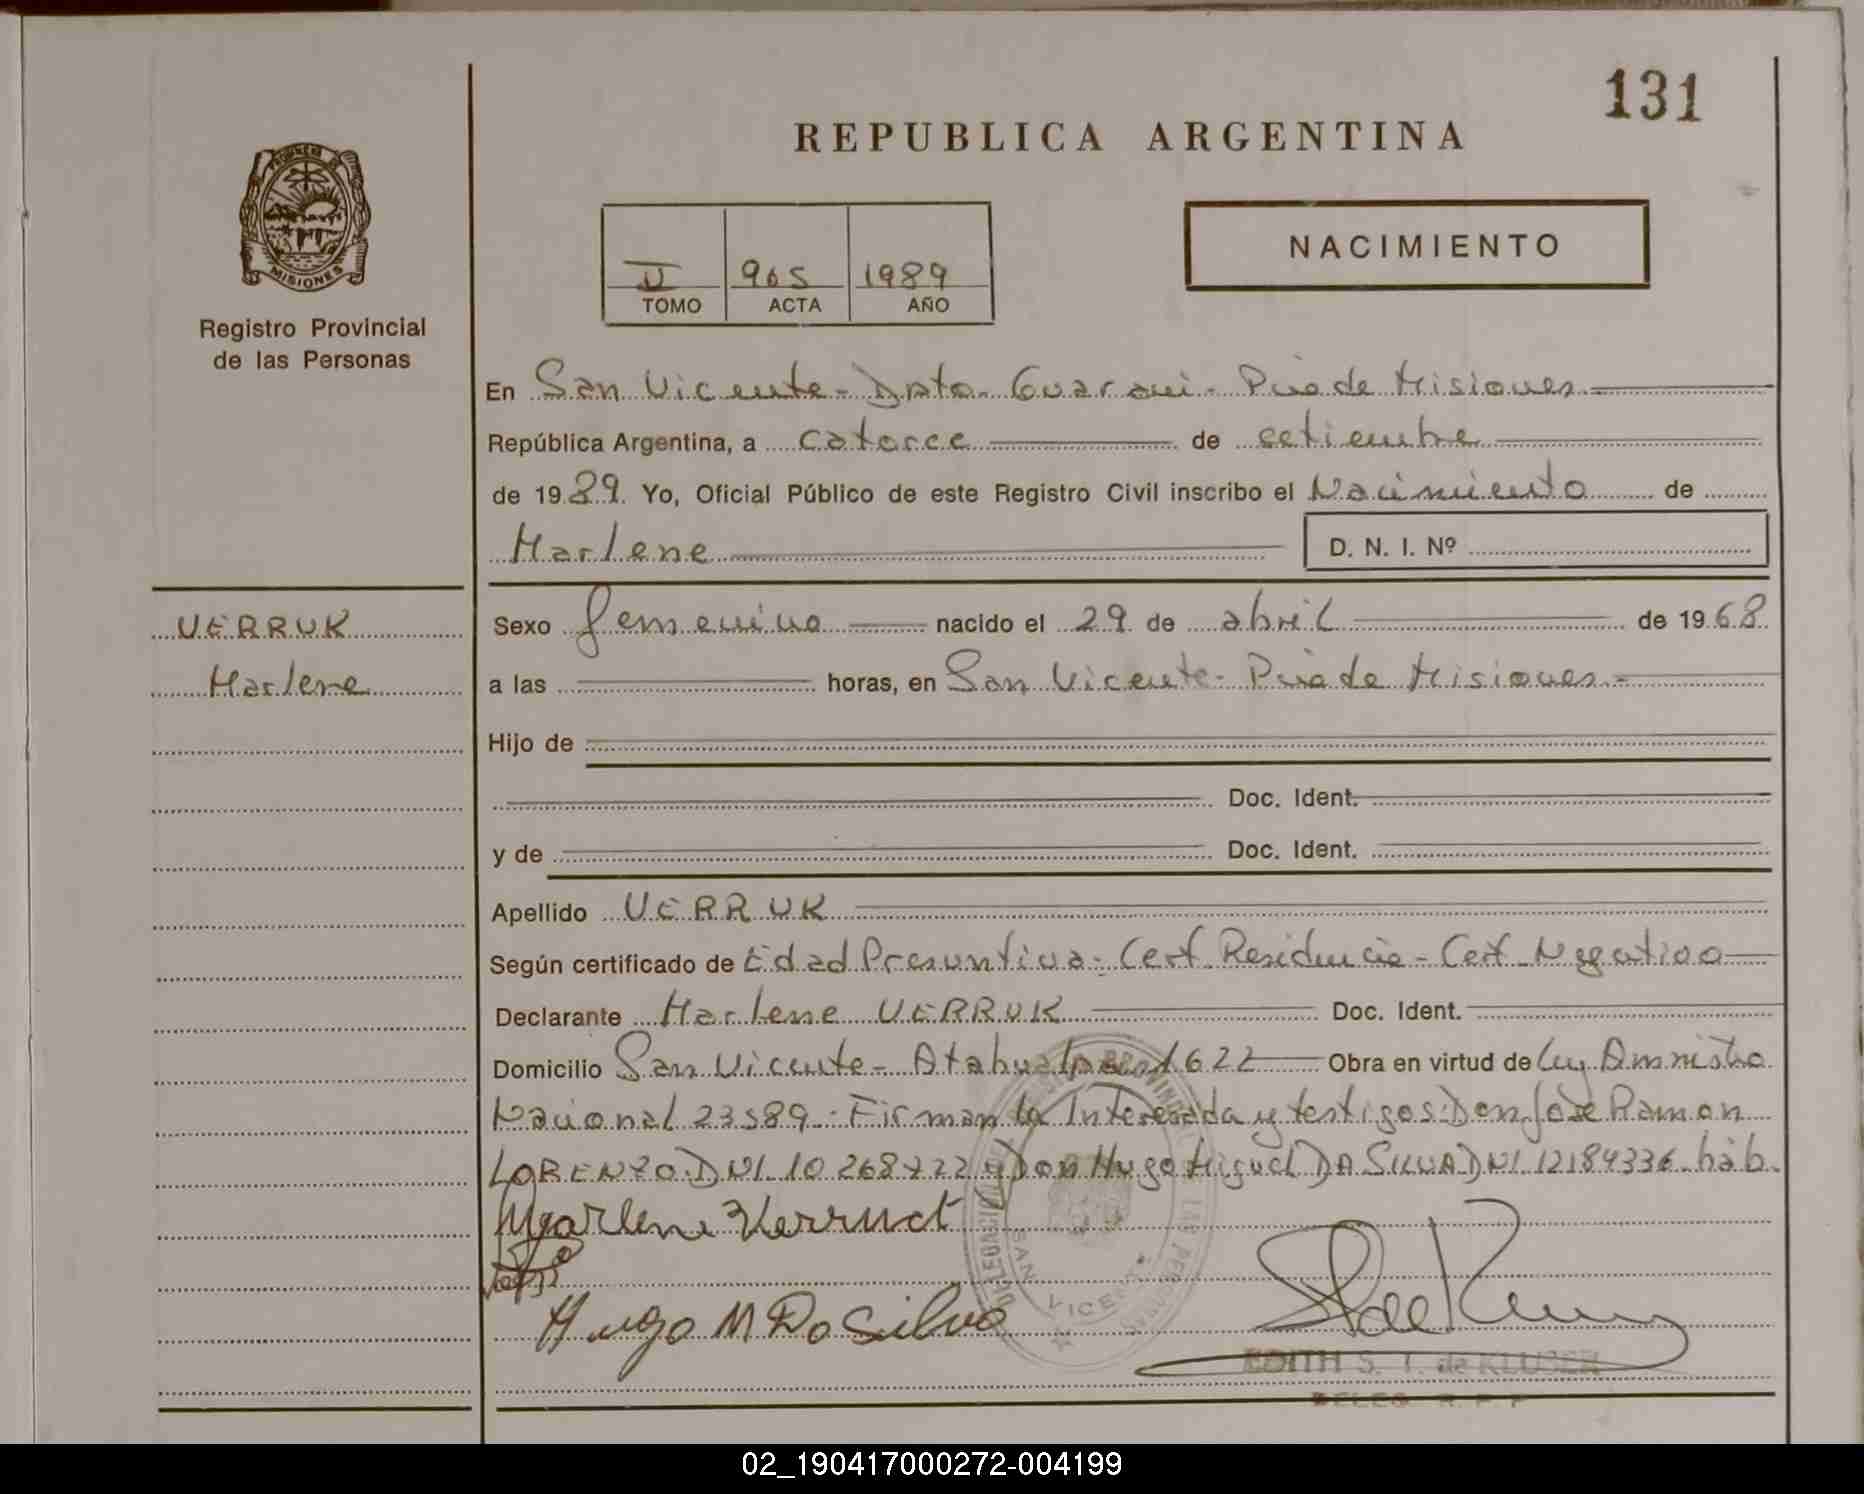 131
REPUBLICA ARGENTINA
PROVINCIA DE
MISIONES
Registro Provincial
de las Personas
II 965 1989
TOMO ACTA AÑO
NACIMIENTO
En San Vicente - Dpto. Guarani - Pcia de Misiones
República Argentina, a catorce de setiembre
de 1989. Yo, Oficial Público de este Registro Civil inscribo el Nacimiento de
Marlene D. N. I. Nº
VERRUK
Marlene
Sexo femenino nacido el 29 de abril de 1968
a las horas, en San Vicente - Pcia de Misiones -
Hijo de
Doc. Ident.
y de Doc. Ident.
Apellido VERRUK
Según certificado de Edad Presuntiva - Cert. Residencia - Cert. Negativo
Declarante Marlene VERRUK Doc. Ident.
Domicilio San Vicente - Atahualpa 1622 Obra en virtud de Ley Amnistia
Nacional 23589 - Firman la Interesada y testigos: Don José Ramon
LORENZO DNI 10.268722 y Don Hugo Miguel DA SILVA DNI 12184336 háb.
Marlene Verruct
Hugo M Da Silva
SAN VICENTE
EDITH S. T. de KLUSER
DELEG. R. P. P
02_190417000272-004199